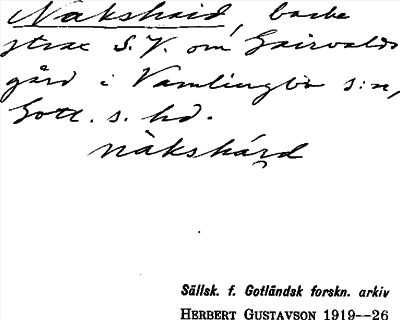 Nákshaid, backe
strax S.V. om Gairvalds
gård i Vamlingbo s:n,
Gotl. s. hd.
nàkshárd
Sällsk. f. Gotländsk forskn. arkiv
HERBERT GUSTAVSON 1919--26